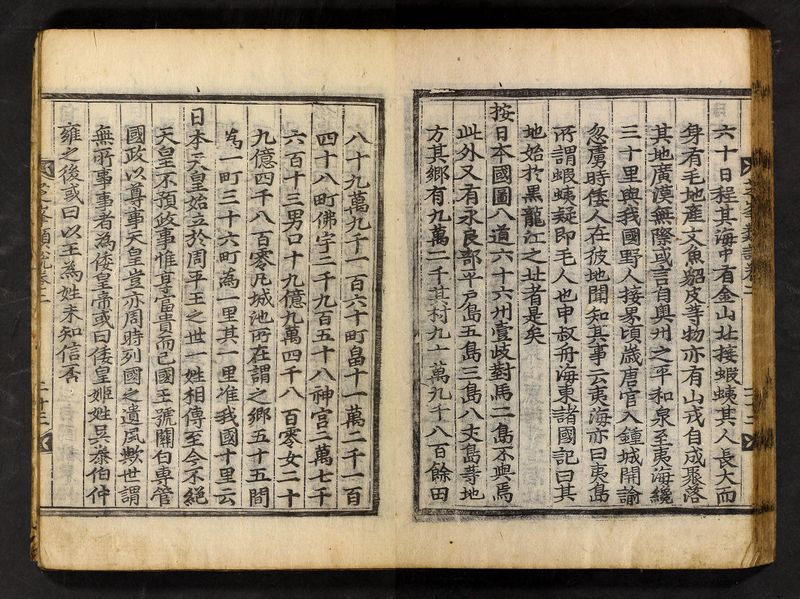 六十日程其海中有金山北接蝦蛦其人長大而
身有毛地産文魚貂皮等物亦有山戎自成聚落
其地廣漠無際或言自奧州之平和泉至夷海纔
三十里與我國野人接界頃歳唐官入鍾城開諭
忽虜時倭人在彼地聞知其事云夷海亦曰夷島
所謂蝦蛦疑即毛人也申叔舟海東諸國記曰其
地始於黒龍江之北者是矣
按日本國圖八道六十六州壹歧對馬二島不與焉
此外又有永良部平戸島五島三島八丈島等地
方其鄕有九萬二千其村九十萬九千八百餘田
八十九萬九千一百六十町畠十一萬二千一百
四十八町佛宇二千九百五十八神宮二萬七千
六百十三男口十九億九萬四千八百零女二十
九億四千八百零凡城池所在謂之鄕五十五間
爲一町三十六町爲一里其一里准我國十里云
日本天皇始立於周平王之世一姓相傳至今不絶
天皇不預政事惟享富貴而已國王號關白專管
國政以尊事天皇豈亦周時列國之遺風歟世謂
無所事事者為倭皇帝或曰倭皇姬姓吳泰伯仲
雍之後或曰以王為姓未知信否
芝峯類說卷二
二十二